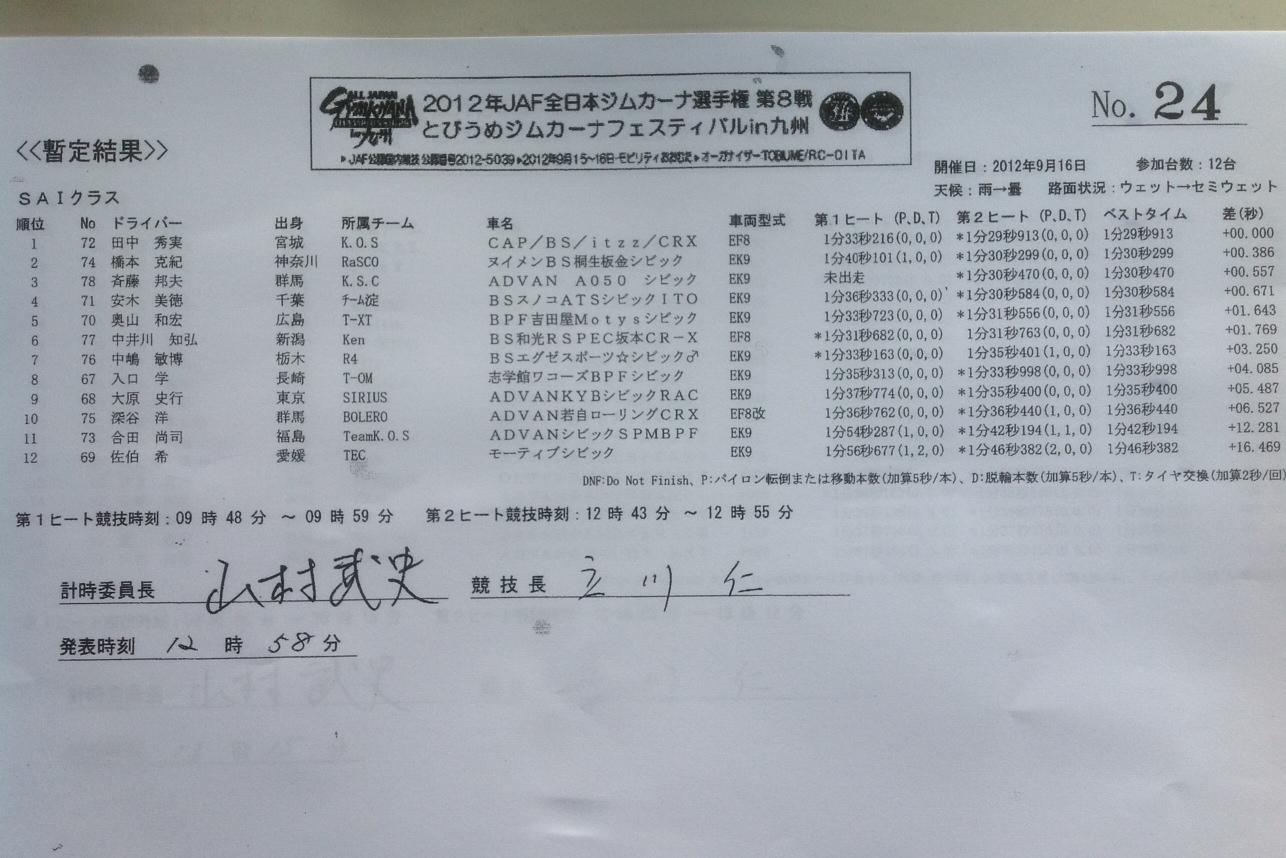 ALL JAPAN
GYMKHANA
in 九州
2012年JAF全日本ジムカーナ選手権 第8戦
とびうめジムカーナフェスティバルin九州
▶JAF公認国内競技 公認番号2012-5039▶2012年9月15~16日 モビリティおおむた▶オーガナイザーTOBIUME/RC-OITA
No. 24
<<暫定結果>>
開催日：2012年9月16日 参加台数：12台
天候：雨→曇 路面状況：ウェット→セミウェット
SA1クラス
順位 No ドライバー 出身 所属チーム 車名 車両型式 第1ヒート(P,D,T) 第2ヒート(P,D,T) ベストタイム 差(秒)
1 72 田中 秀実 宮城 K.O.S CAP/BS/itzz/CRX EF8 1分33秒216(0,0,0) *1分29秒913(0,0,0) 1分29秒913 +00.000
2 74 橋本 克紀 神奈川 RaSCO ヌイメンBS桐生板金シビック EK9 1分40秒101(1,0,0) *1分30秒299(0,0,0) 1分30秒299 +00.386
3 78 斉藤 邦夫 群馬 K.S.C ADVAN A050 シビック EK9 未出走 *1分30秒470(0,0,0) 1分30秒470 +00.557
4 71 安木 美徳 千葉 チーム淀 BSスノコATSシビックITO EK9 1分36秒333(0,0,0) *1分30秒584(0,0,0) 1分30秒584 +00.671
5 70 奥山 和宏 広島 T-XT BPF吉田屋Motysシビック EK9 1分33秒723(0,0,0) *1分31秒556(0,0,0) 1分31秒556 +01.643
6 77 中井川 知弘 新潟 Ken BS和光RSPEC坂本CR-X EF8 *1分31秒682(0,0,0) 1分31秒763(0,0,0) 1分31秒682 +01.769
7 76 中嶋 敏博 栃木 R4 BSエグゼスポーツ☆シビック♂ EK9 *1分33秒163(0,0,0) 1分35秒401(1,0,0) 1分33秒163 +03.250
8 67 入口 学 長崎 T-OM 志学館ワコーズBPFシビック EK9 1分35秒313(0,0,0) *1分33秒998(0,0,0) 1分33秒998 +04.085
9 68 大原 史行 東京 SIRIUS ADVANKYBシビックRAC EK9 1分37秒774(0,0,0) *1分35秒400(0,0,0) 1分35秒400 +05.487
10 75 深谷 洋 群馬 BOLERO ADVAN若自ローリングCRX EF8改 1分36秒762(0,0,0) *1分36秒440(1,0,0) 1分36秒440 +06.527
11 73 合田 尚司 福島 TeamK.O.S ADVANシビックSPMBPF EK9 1分54秒287(1,0,0) *1分42秒194(1,1,0) 1分42秒194 +12.281
12 69 佐伯 希 愛媛 TEC モーティブシビック EK9 1分56秒677(1,2,0) *1分46秒382(2,0,0) 1分46秒382 +16.469
DNF:Do Not Finish、P:パイロン転倒または移動本数(加算5秒/本)、D:脱輪本数(加算5秒/本)、T:タイヤ交換(加算2秒/回)
第1ヒート競技時刻：09 時 48 分 ～ 09 時 59 分 第2ヒート競技時刻：12 時 43 分 ～ 12 時 55 分
計時委員長 山村武史 競技長 立川 仁
発表時刻 12 時 58 分